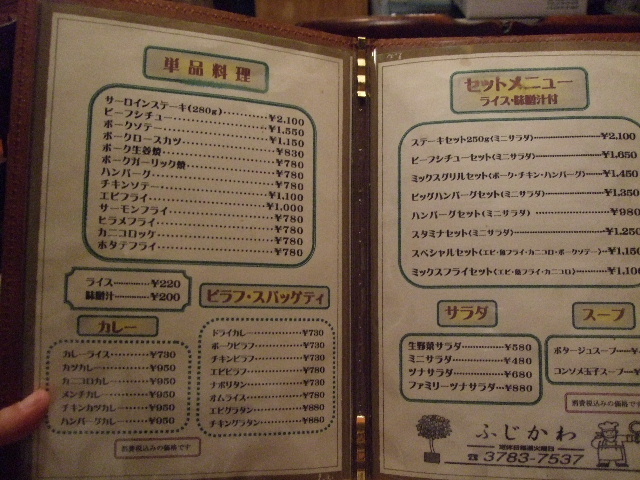 単品料理
サーロインステーキ(280g)…………¥2,100
ビーフシチュー…………¥1,550
ポークソテー…………¥1,150
ポークロースカツ…………¥830
ポーク生姜焼…………¥780
ポークガーリック焼…………¥780
ハンバーグ…………¥780
チキンソテー…………¥780
エビフライ…………¥1,100
サーモンフライ…………¥1,000
ヒラメフライ…………¥780
カニコロッケ…………¥780
ホタテフライ…………¥780
ライス…………¥220
味噌汁…………¥200
カレー
カレーライス…………¥730
カツカレー…………¥950
カニコロカレー…………¥950
メンチカレー…………¥950
チキンカツカレー…………¥950
ハンバーグカレー…………¥950
ピラフ・スパッゲティ
ドライカレー…………¥730
ポークピラフ…………¥730
チキンピラフ…………¥730
エビピラフ…………¥780
ナポリタン…………¥730
オムライス…………¥780
エビグラタン…………¥880
チキングラタン…………¥880
消費税込みの価格です
セットメニュー
ライス・味噌汁付
ステーキセット250g(ミニサラダ)…………¥2,100
ビーフシチューセット(ミニサラダ)…………¥1,650
ミックスグリルセット(ポーク・チキン・ハンバーグ)…………¥1,450
ビッグハンバーグセット(ミニサラダ)…………¥1,350
ハンバーグセット(ミニサラダ)…………¥980
スタミナセット(ミニサラダ)…………¥1,250
スペシャルセット(エビ・魚フライ・カニコロ・ポークソテー)…………¥1,150
ミックスフライセット(エビ・魚フライ・カニコロ)…………¥1,100
サラダ
生野菜サラダ…………¥580
ミニサラダ…………¥480
ツナサラダ…………¥680
ファミリーツナサラダ…………¥880
スープ
ポタージュスープ…………¥
コンソメ玉子スープ…………¥
消費税込みの価格です
ふじかわ
定休日毎週火曜日
☎3783-7537